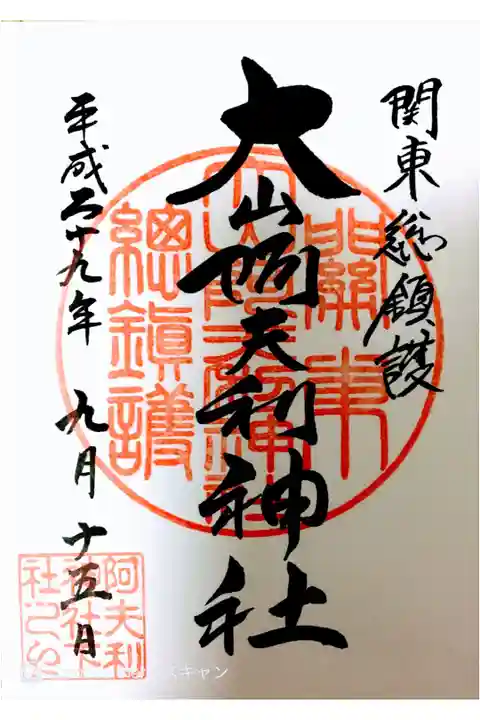 関東総鎮護
大山阿夫利神社
平成二十九年 九月 十五日
關東
總鎮護
阿夫利
神社下
スキャン